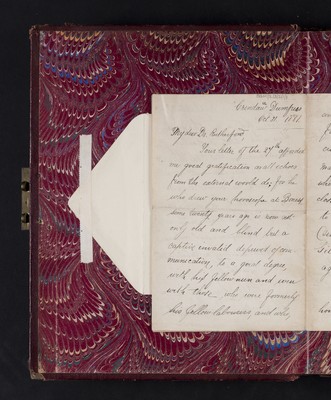 Crindau, Dumfries
Oct 31 1878
My dear Dr. Rutherford
Your letter of the 27th afforded
me great gratification as all echoes
from the external world do; for he
who drew your horoscope at Dumf
some twenty years ago is now not
only old and blind but a
captive invalid deprived of com-
munication, to a great degree,
with his fellow men and even
with those who were formerly
his fellow labourers, and who,